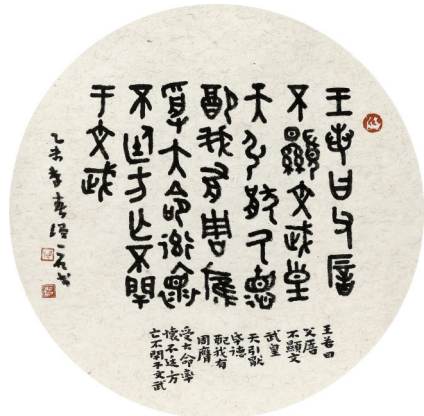 王若曰父厝
不顯文武皇
天引猒氒德
配我有周雁
受大命率懷
不廷方亡不閈
于文武
乙未 春
王若曰
父厝
不顯文
武皇
天引猒
氒德
配我有
周膺
受大命率
懷不廷方
亡不閈于文武